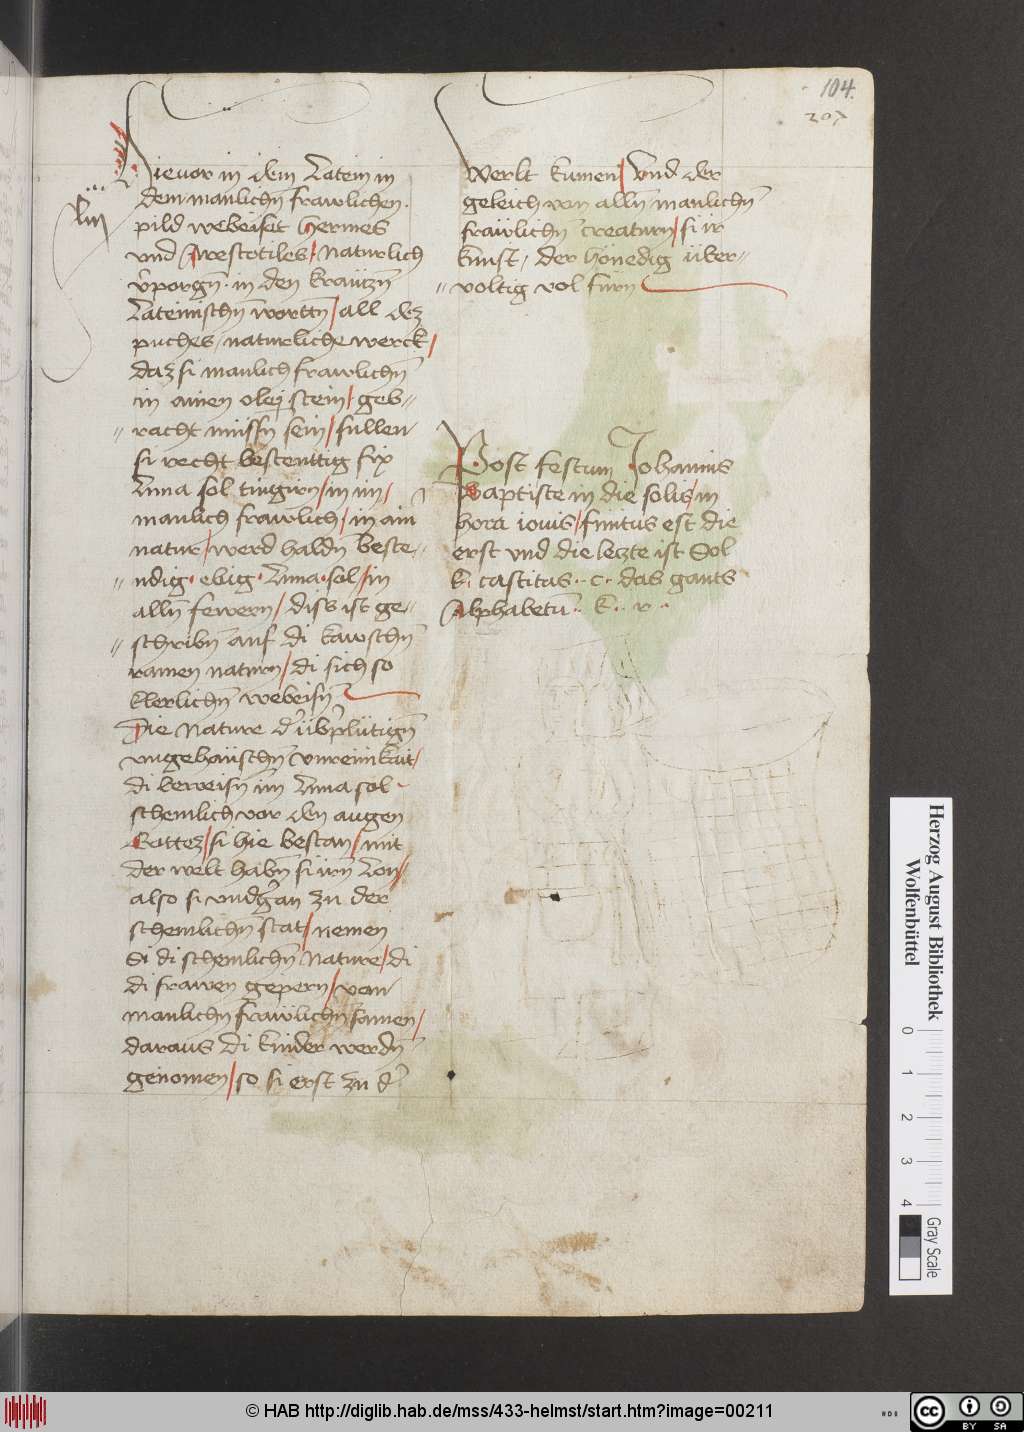 104.
207
Hievor in dem Latein in
dem manlichñ frawlichen.
pild webeisit hermes
vnd Arestotiles / Naturlich
v̾porgñ. in den krautzñ
Lateinischñ worttñ / all dez
puches, naturliche werck /
daz si manlich frawlichñ
in ainen olei stein / geb-
racht müssn sein / sullen
si recht bestenttig fix
Luna sol tingirn / in im /
manlich frawlich / in ain̄
natur / werd haldñ beste-
ndig. ebig. Luna. sol / in
allñ fewern / diss ist ge-
schribñ auf di kawschñ
ramen naturn / di sich so
klerlichñ webeisñ
Die Nature d̾ üb̾plütigñ
vngehaüschñ vnreinikait /
di beweisñ im Luna sol
schemlich vor den augen
Gottez / si hie bestan / mit
der welt habñ si irñ Lon /
also si vnd̾gan zu der
schemlichñ stat / nemen
Si di schemlichñ Nature / di
di frawen gepern / von
manlichñ frawlichñ samen /
daraus di kinder werdñ
genomen / so si erst zu d̾
Werlt kumen / Vnd der
geleich von allñ manlichñ
frawlichñ creaturn / si ir
kunst, der honedig über-
voltig vol fürn
Post festum Johannis
Baptiste in die solis / in
hora iouis / finitus est die
erst vnd die lezte ist Sol
k. castitas.. c. das gants
Alphabetū.. k.. v..
Herzog August Bibliothek
Wolfenbüttel
0 1 2 3 4
Gray Scale
© HAB http://diglib.hab.de/mss/433-helmst/start.htm?image=00211
cc BY SA